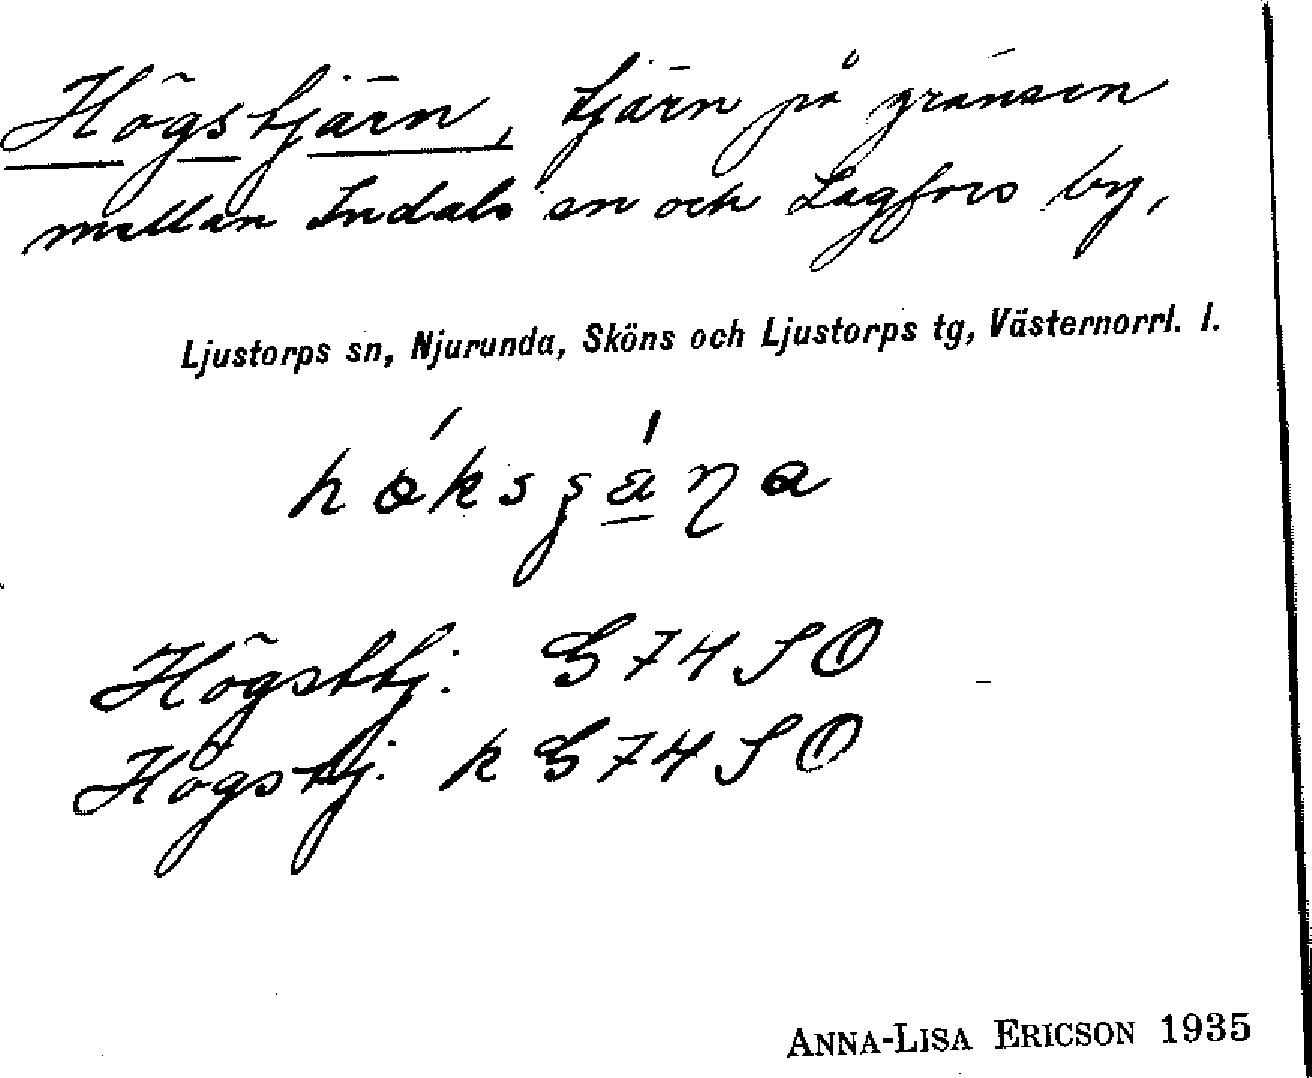 Högstjärn, tjärn på gränsen
mellan Indals sn och Lagfors by,
Ljustorps sn, Njurunda, Sköns och Ljustorps tg, Västernorrl. l.
Högsttj. G 74 SO
Högstj. k G 74 SO
ANNA-LISA ERICSON 1935